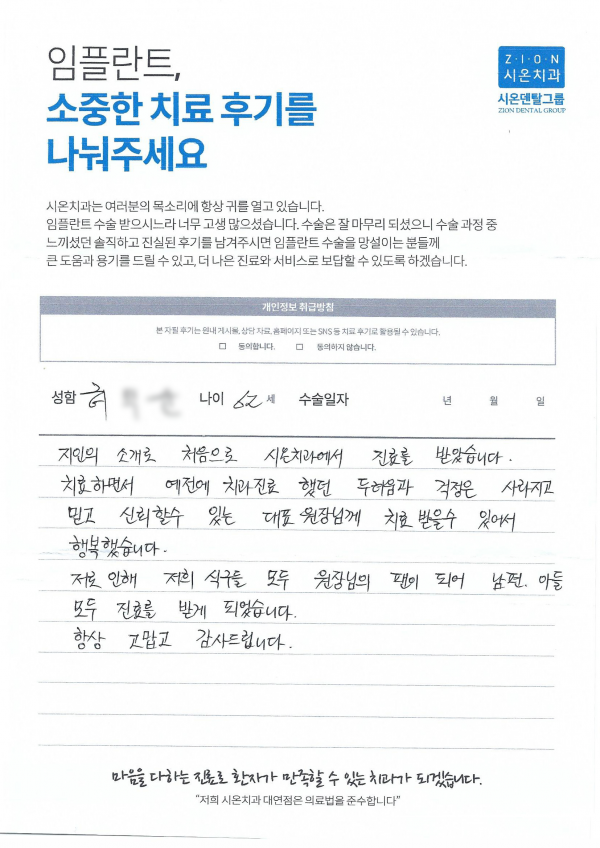 임플란트,
소중한 치료 후기를
나눠주세요
Z·I·O·N
시온치과
시온덴탈그룹
ZION DENTAL GROUP
시온치과는 여러분의 목소리에 항상 귀를 열고 있습니다.
임플란트 수술 받으시느라 너무 고생 많으셨습니다. 수술은 잘 마무리 되셨으니 수술 과정 중
느끼셨던 솔직하고 진실된 후기를 남겨주시면 임플란트 수술을 망설이는 분들께
큰 도움과 용기를 드릴 수 있고, 더 나은 진료와 서비스로 보답할 수 있도록 하겠습니다.
개인정보 취급방침
본 자필 후기는 원내 게시물, 상담 자료, 홈페이지 또는 SNS 등 치료 후기로 활용될 수 있습니다.
□ 동의합니다. □ 동의하지 않습니다.
성함 허 나이 62 세 수술일자 년 월 일
지인의 소개로 처음으로 시온치과에서 진료를 받았습니다.
치료하면서 예전에 치과진료 했던 두려움과 걱정은 사라지고
믿고 신뢰할수 있는 대표 원장님께 치료 받을수 있어서
행복했습니다.
저로 인해 저희 식구들 모두 원장님의 팬이 되어 남편. 아들
모두 진료를 받게 되었습니다.
항상 고맙고 감사드립니다.
마음을 다하는 진료로 환자가 만족할 수 있는 치과가 되겠습니다.
"저희 시온치과 대연점은 의료법을 준수합니다"